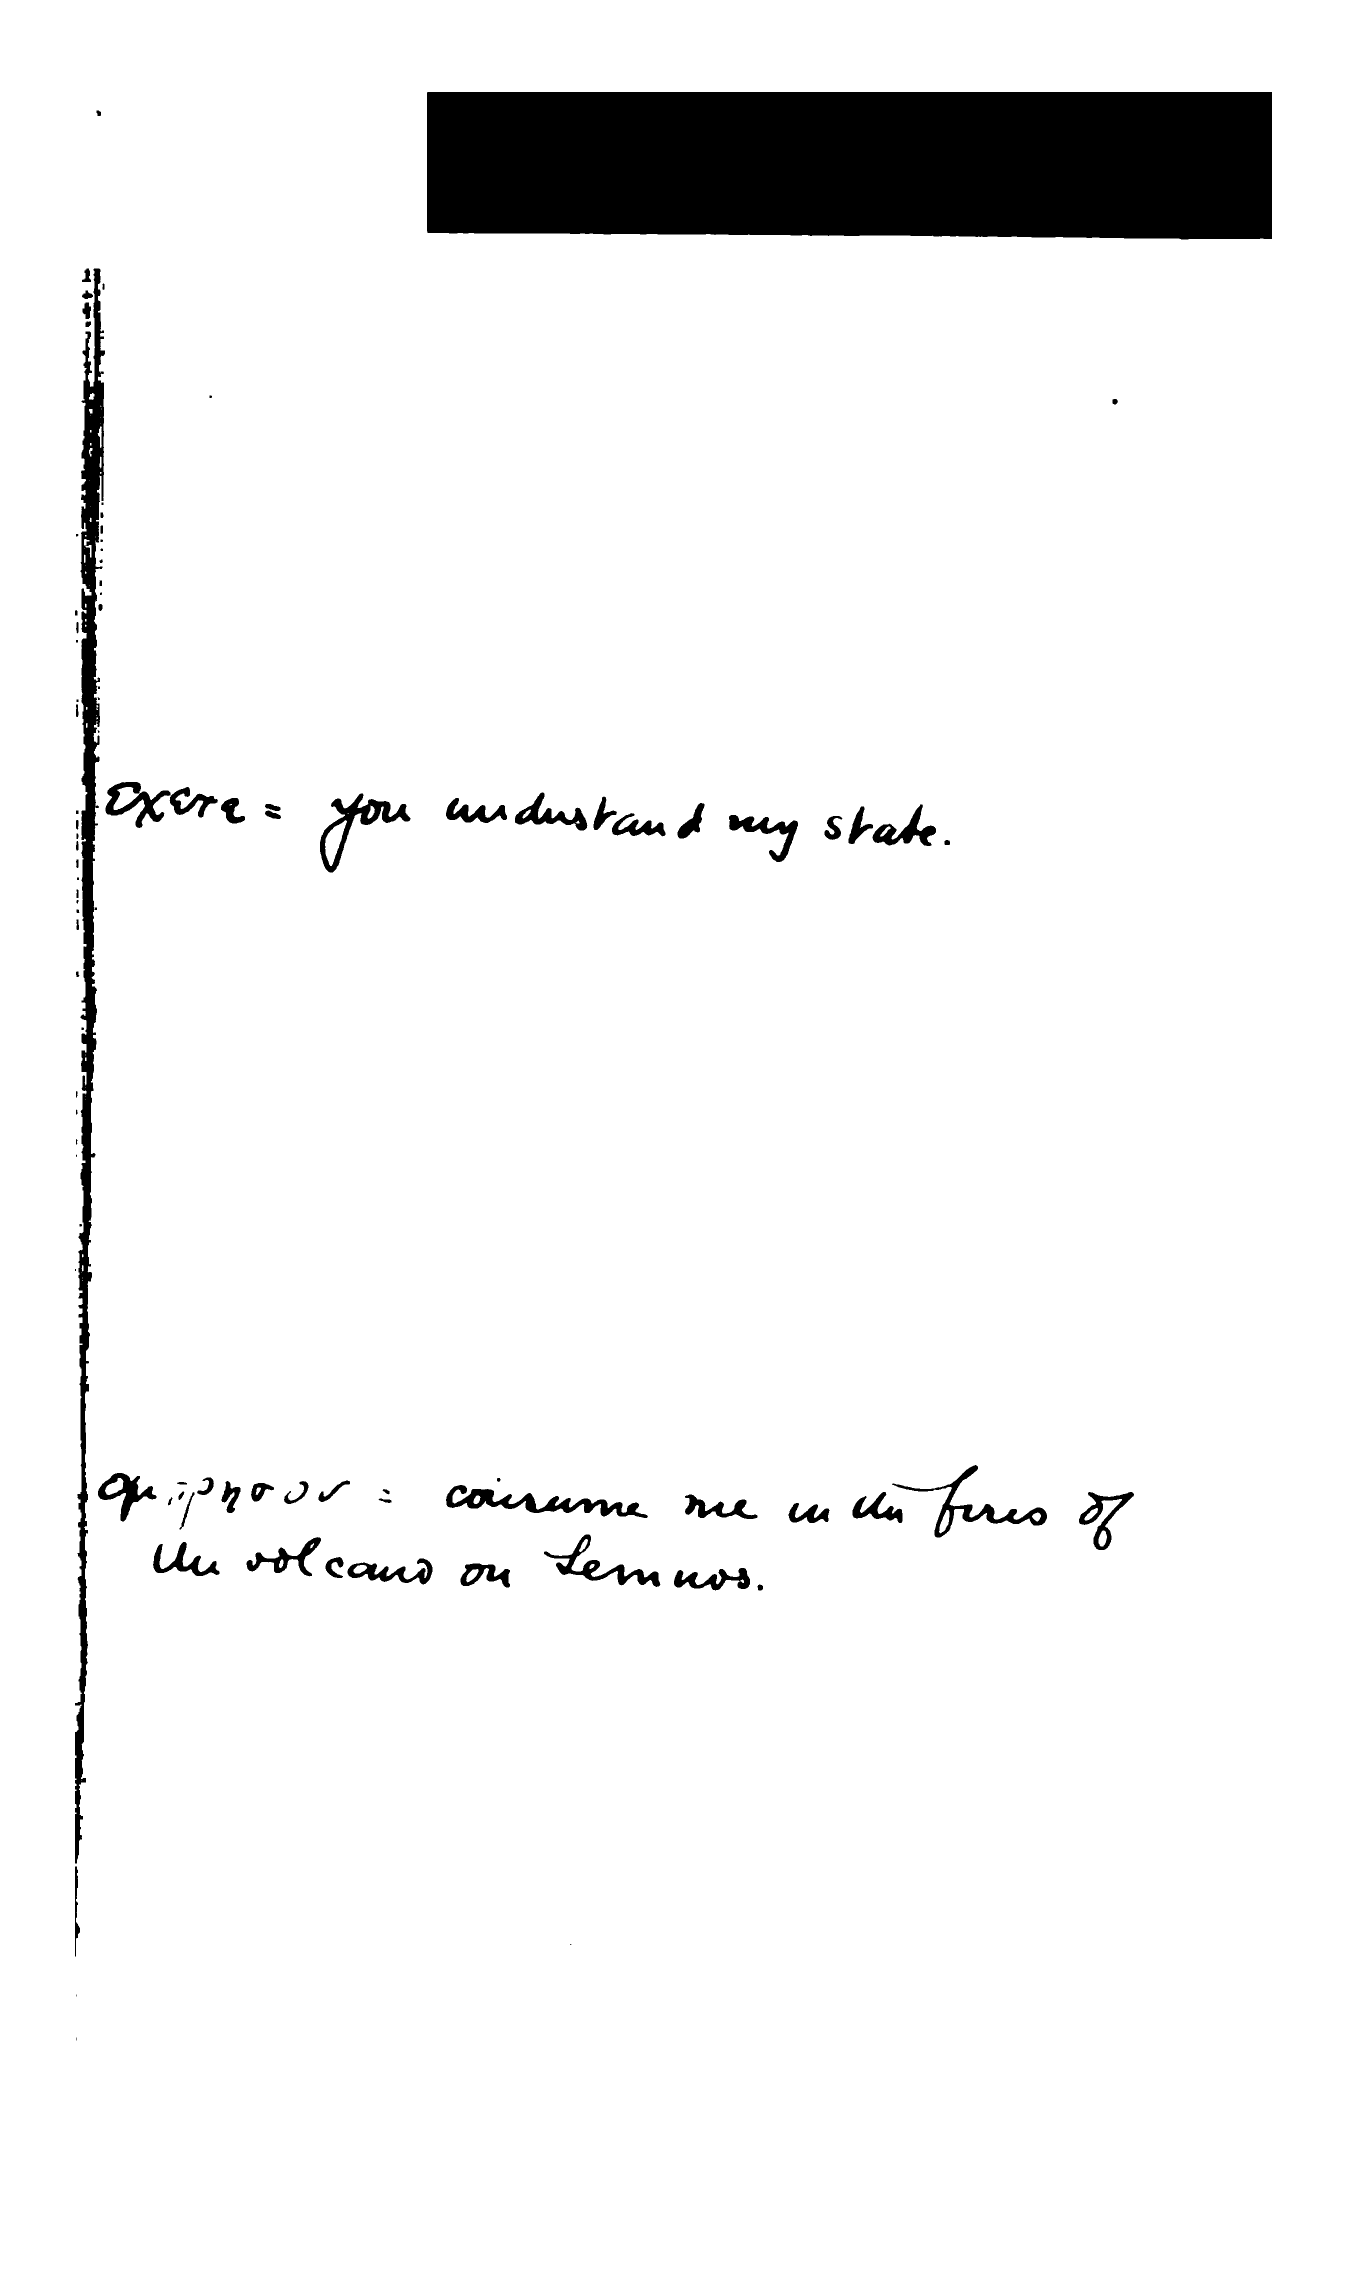 εχετε = you understand my state.
= consume me in the fires of
the volcano on Lemnos.